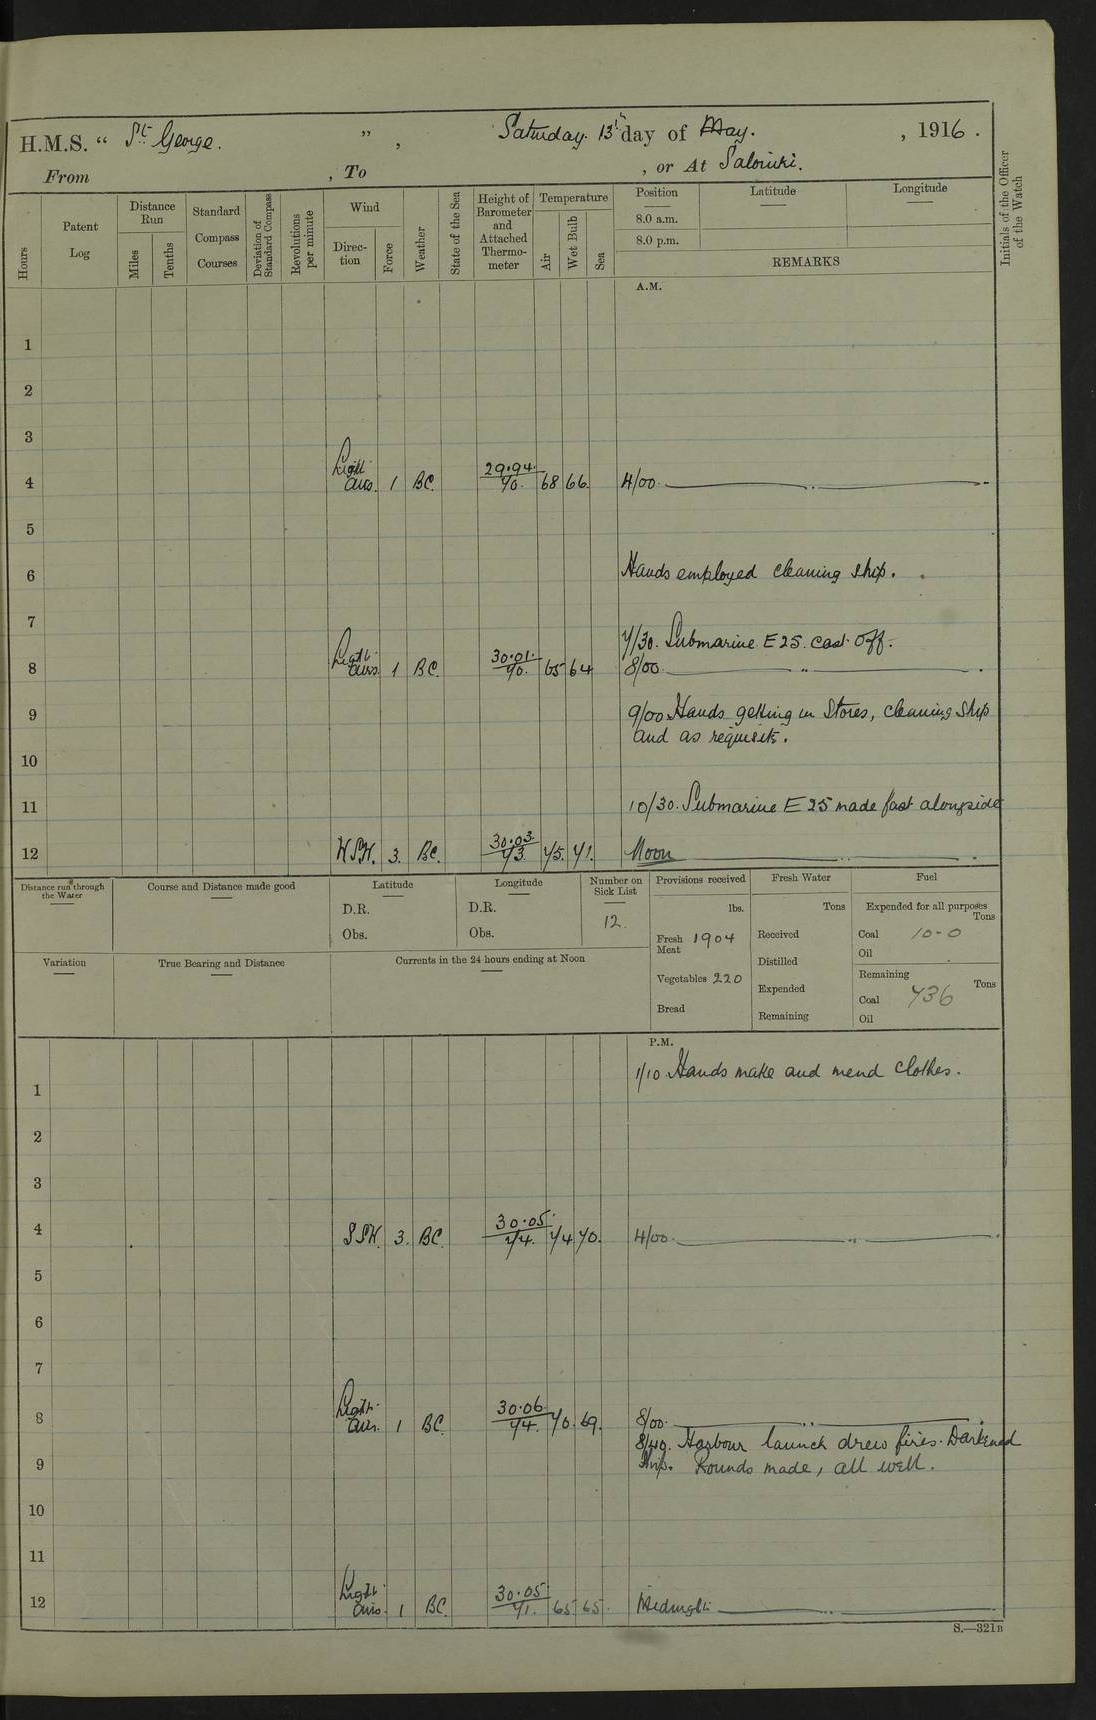 H.M.S. " St George. " , Saturday. 13th day of May. , 1916 .
From , To , or At Salonika.
Hours
Patent Log
Distance Run
Miles
Tenths
Standard Compass Courses
Deviation of Standard Compass
Revolutions per minute
Wind
Direc- tion
Force
Weather
State of the Sea
Height of Barometer and Attached Thermo- meter
Temperature
Air
Wet Bulb
Sea
Position
8.0 a.m.
8.0 p.m.
Latitude
Longitude
REMARKS
Initials of the Officer of the Watch
A.M.
1
2
3
4 Light airs. 1 BC. 29.94. 70. 68 66. 4/00. "
5
6 Hands employed cleaning ship.
7 7/30. Submarine E25. cast off.
8 Light airs. 1 BC. 30.01. 70. 65 64 8/00 "
9 9/00 Hands getting in Stores, cleaning ship
and as requisite.
10
11 10/30. Submarine E25 made fast alongside
12 WSW. 3. BC. 30.03. 73. 75. 71. Noon "
Distance run through the Water
Course and Distance made good
Latitude
D.R.
Obs.
Longitude
D.R.
Obs.
Number on Sick List
12.
Provisions received
lbs.
Fresh Meat 1904
Vegetables 220
Bread
Fresh Water
Tons
Received
Distilled
Expended
Remaining
Fuel
Expended for all purposes
Tons
Coal 10-0
Oil
Remaining
Tons
Coal 736
Oil
Variation
True Bearing and Distance
Currents in the 24 hours ending at Noon
P.M.
1 1/10 Hands make and mend clothes.
2
3
4 SSW. 3. BC. 30.05. 74. 74 70. 4/00. "
5
6
7
8 Light airs. 1 BC. 30.06. 74. 70. 69. 8/00. "
8/40. Harbour launch drew fires. Darkened
9 ship. Rounds made, all well.
10
11
12 Light airs. 1 BC. 30.05 71. 65 65. Midnight
S.—321B